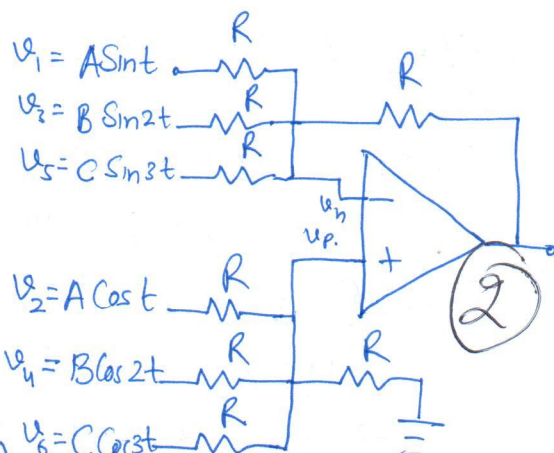 R
v₁ = A Sin t
R
v₃ = B Sin 2t
R
R
v₅ = C Sin 3t
vₙ
−
vₚ.
+
2
v₂ = A Cos t
R
v₄ = B Cos 2t
R
R
v₆ = C Cos 3t
R